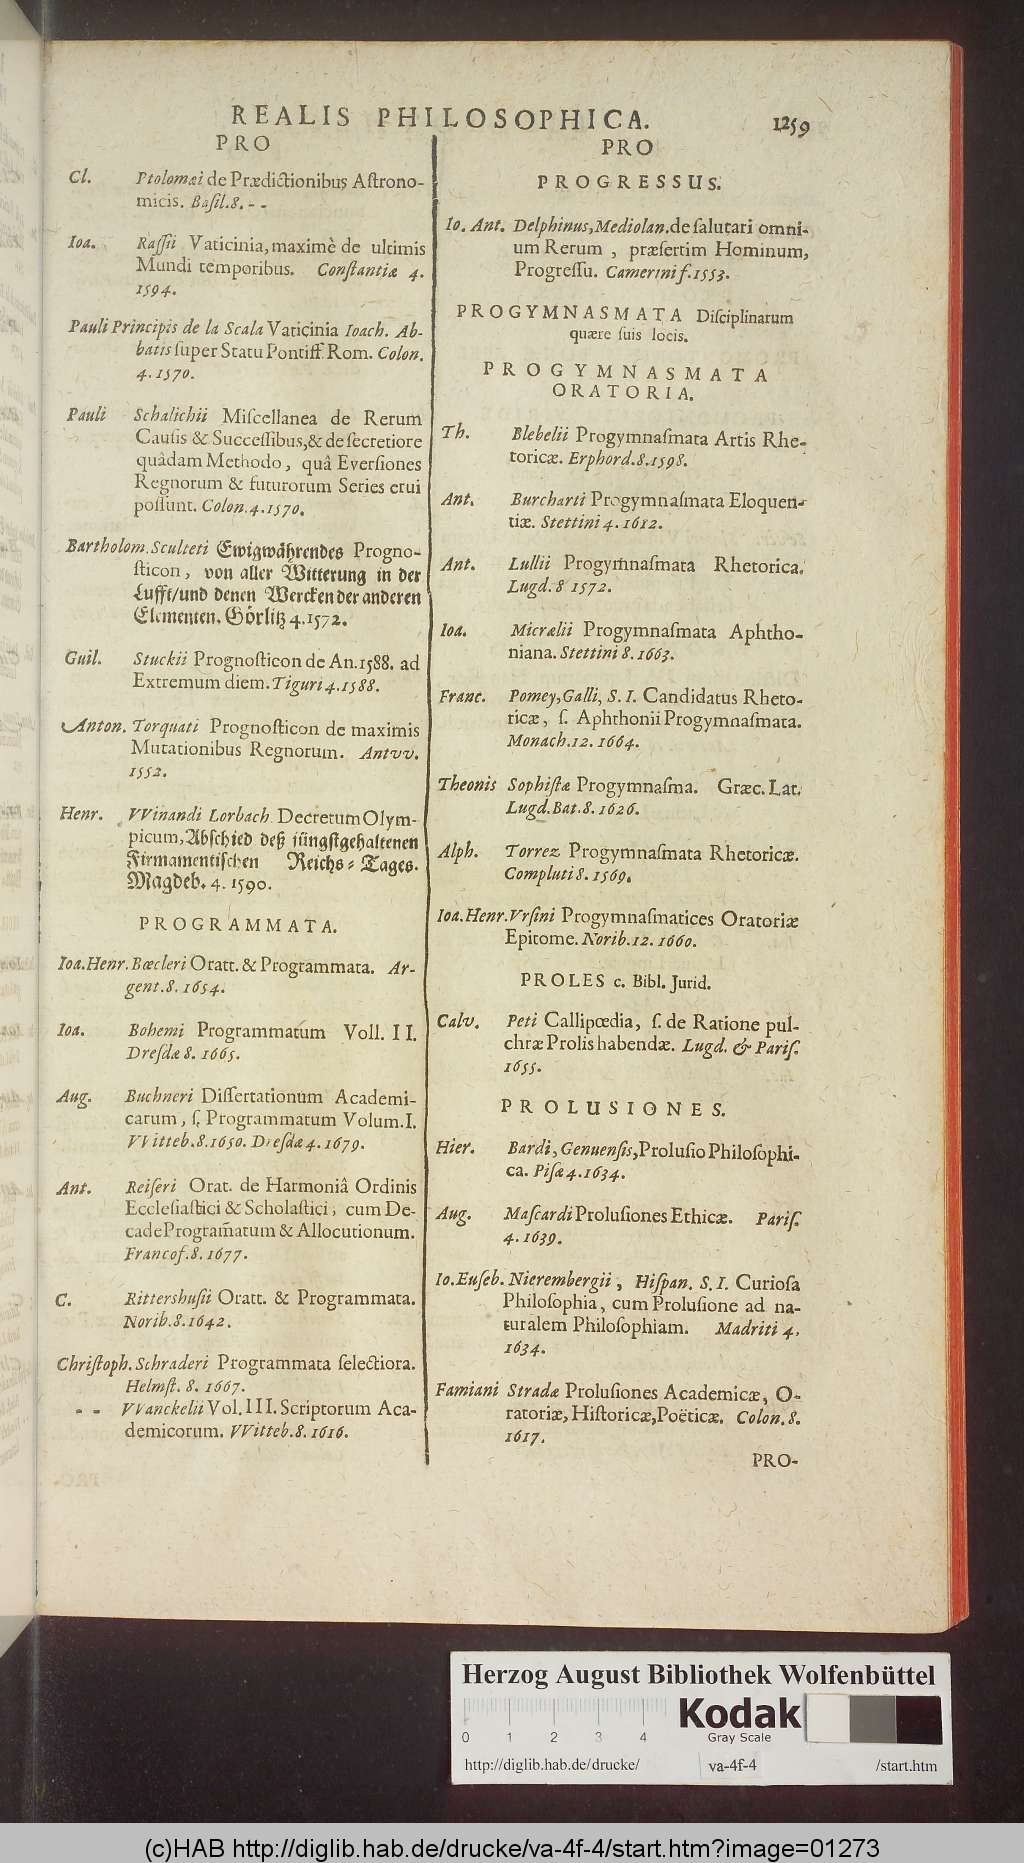 REALIS PHILOSOPHICA. 1259
PRO
Cl. Ptolomæi de Prædictionibus Aſtrono-
micis. Baſil. 8. - -
Ioa. Raſſii Vaticinia, maximè de ultimis
Mundi temporibus. Conſtantiæ 4.
1594.
Pauli Principis de la Scala Vaticinia Ioach. Ab-
batis ſuper Statu Pontiff. Rom. Colon.
4. 1570.
Pauli Schalichii Miſcellanea de Rerum
Cauſis & Succeſſibus, & de ſecretiore
quâdam Methodo, quâ Everſiones
Regnorum & futurorum Series erui
poſſunt. Colon. 4. 1570.
Bartholom. Sculteti Ewigwährendes Progno-
ſticon, von aller Witterung in der
Lufft/und denen Wercken der anderen
Elementen. Görlitz 4. 1572.
Guil. Stuckii Prognoſticon de An. 1588. ad
Extremum diem. Tiguri 4. 1588.
Anton. Torquati Prognoſticon de maximis
Mutationibus Regnorum. Antvv.
1552.
Henr. VVinandi Lorbach Decretum Olym-
picum, Abſchied deß jüngſtgehaltenen
Firmamentiſchen Reichs-Tages.
Magdeb. 4. 1590.
PROGRAMMATA.
Ioa. Henr. Bœcleri Oratt. & Programmata. Ar-
gent. 8. 1654.
Ioa. Bohemi Programmatum Voll. II.
Dreſdæ 8. 1665.
Aug. Buchneri Diſſertationum Academi-
carum, ſ. Programmatum Volum. I.
VVitteb. 8. 1650. Dreſdæ 4. 1679.
Ant. Reiſeri Orat. de Harmoniâ Ordinis
Eccleſiaſtici & Scholaſtici, cum De-
cade Program̃atum & Allocutionum.
Francof. 8. 1677.
C. Rittershuſii Oratt. & Programmata.
Norib. 8. 1642.
Chriſtoph. Schraderi Programmata ſelectiora.
Helmſt. 8. 1667.
- - VVanckelii Vol. III. Scriptorum Aca-
demicorum. VVitteb. 8. 1616.
PRO
PROGRESSUS.
Io. Ant. Delphinus, Mediolan. de ſalutari omni-
um Rerum, præſertim Hominum,
Progreſſu. Camerini f. 1553.
PROGYMNASMATA Diſciplinarum
quære ſuis locis.
PROGYMNASMATA
ORATORIA.
Th. Blebelii Progymnaſmata Artis Rhe-
toricæ. Erphord. 8. 1598.
Ant. Burcharti Progymnaſmata Eloquen-
tiæ. Stettini 4. 1612.
Ant. Lullii Progymnaſmata Rhetorica.
Lugd. 8 1572.
Ioa. Micrælii Progymnaſmata Aphtho-
niana. Stettini 8. 1663.
Franc. Pomey, Galli, S. I. Candidatus Rheto-
ricæ, ſ. Aphthonii Progymnaſmata.
Monach. 12. 1664.
Theonis Sophiſtæ Progymnaſma. Græc. Lat.
Lugd. Bat. 8. 1626.
Alph. Torrez Progymnaſmata Rhetoricæ.
Compluti 8. 1569.
Ioa. Henr. Vrſini Progymnaſmatices Oratoriæ
Epitome. Norib. 12. 1660.
PROLES c. Bibl. Jurid.
Calv. Peti Callipœdia, ſ. de Ratione pul-
chræ Prolis habendæ. Lugd. & Pariſ.
1655.
PROLUSIONES.
Hier. Bardi, Genuenſis, Proluſio Philoſophi-
ca. Piſæ 4. 1634.
Aug. Maſcardi Proluſiones Ethicæ. Pariſ.
4. 1639.
Io. Euſeb. Nierembergii, Hiſpan. S. I. Curioſa
Philoſophia, cum Proluſione ad na-
turalem Philoſophiam. Madriti 4.
1634.
Famiani Stradæ Proluſiones Academicæ, O-
ratoriæ, Hiſtoricæ, Poëticæ. Colon. 8.
1617.
PRO-
Herzog August Bibliothek Wolfenbüttel
0 1 2 3 4
Kodak
Gray Scale
http://diglib.hab.de/drucke/ va-4f-4 /start.htm
(c)HAB http://diglib.hab.de/drucke/va-4f-4/start.htm?image=01273